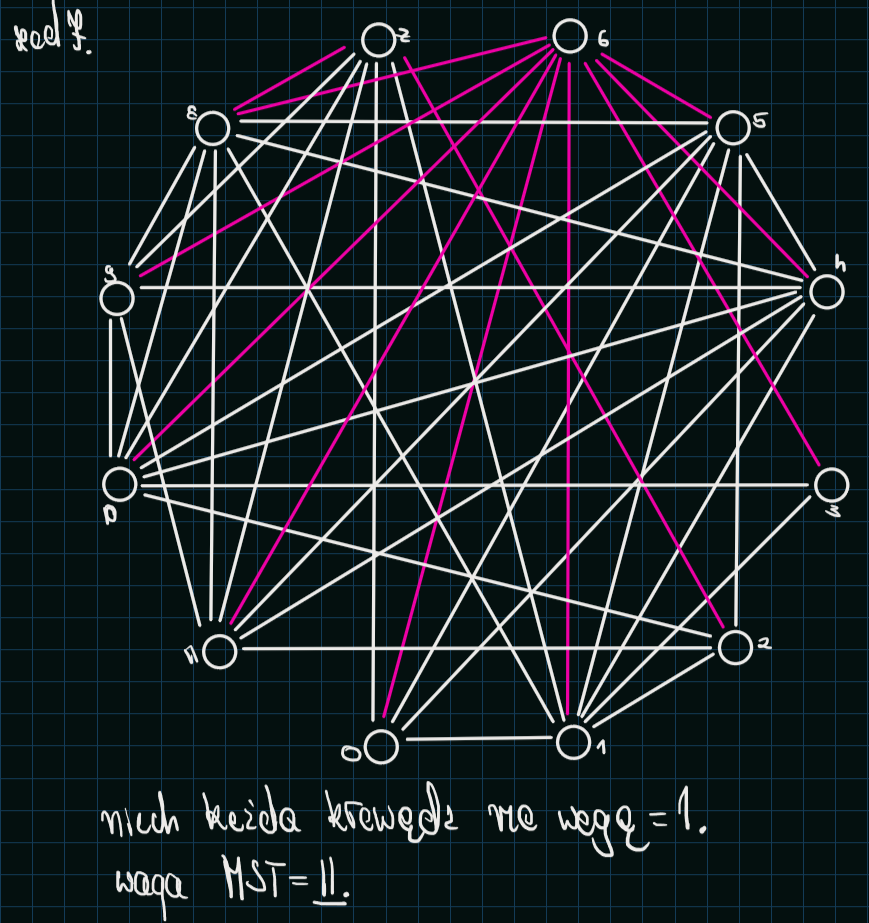 zad 7.
7 6
8 5
9 4
10 3
11 2
0 1
niech każda krawędź ma wagę = 1.
waga MST = 11.